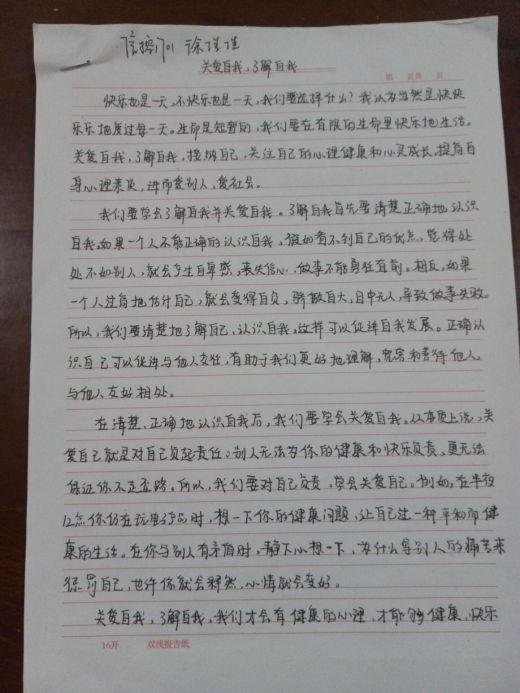 信控1701 徐佳佳
关爱自我,了解自我
第 页共 页
快乐也是一天,不快乐也是一天,我们要选择什么?我认为当然是快快
乐乐地度过每一天。生命是短暂的,我们要在有限的生命里快乐地生活。
关爱自我,了解自我,接纳自己,关注自己的心理健康和心灵成长,提高自
身心理素质,进而爱别人,爱社会。
我们要学会了解自我并关爱自我。了解自我首先要清楚正确地认识
自我,如果一个人不能正确的认识自我,假如看不到自己的优点,觉得处
处不如别人,就会产生自卑感,丧失信心,做事不能勇往直前。相反,如果
一个人过高地估计自己,就会变得自负,骄傲自大,目中无人,导致做事失败。
所以,我们要清楚地了解自己、认识自我,这样可以促进自我发展。正确认
识自己可以促进与他人交往,有助于我们更好地理解,宽容和善待他人
与他人友好相处。
在清楚、正确地认识自我后,我们要学会关爱自我。从本质上说,关
爱自己就是对自己负起责任。别人无法为你的健康和快乐负责,更无法
保证你不走歪路。所以,我们要对自己负责,学会关爱自己。例如,在半夜
12点你仍在玩电子产品时,想一下你的健康问题,让自己过一种平和而健
康的生活。在你与别人有矛盾时,静下心想一下,为什么拿别人的痛苦来
惩罚自己,也许你就会释然,心情就会变好。
关爱自我,了解自我,我们才会有健康的心理,才能够健康、快乐
16开 双线报告纸